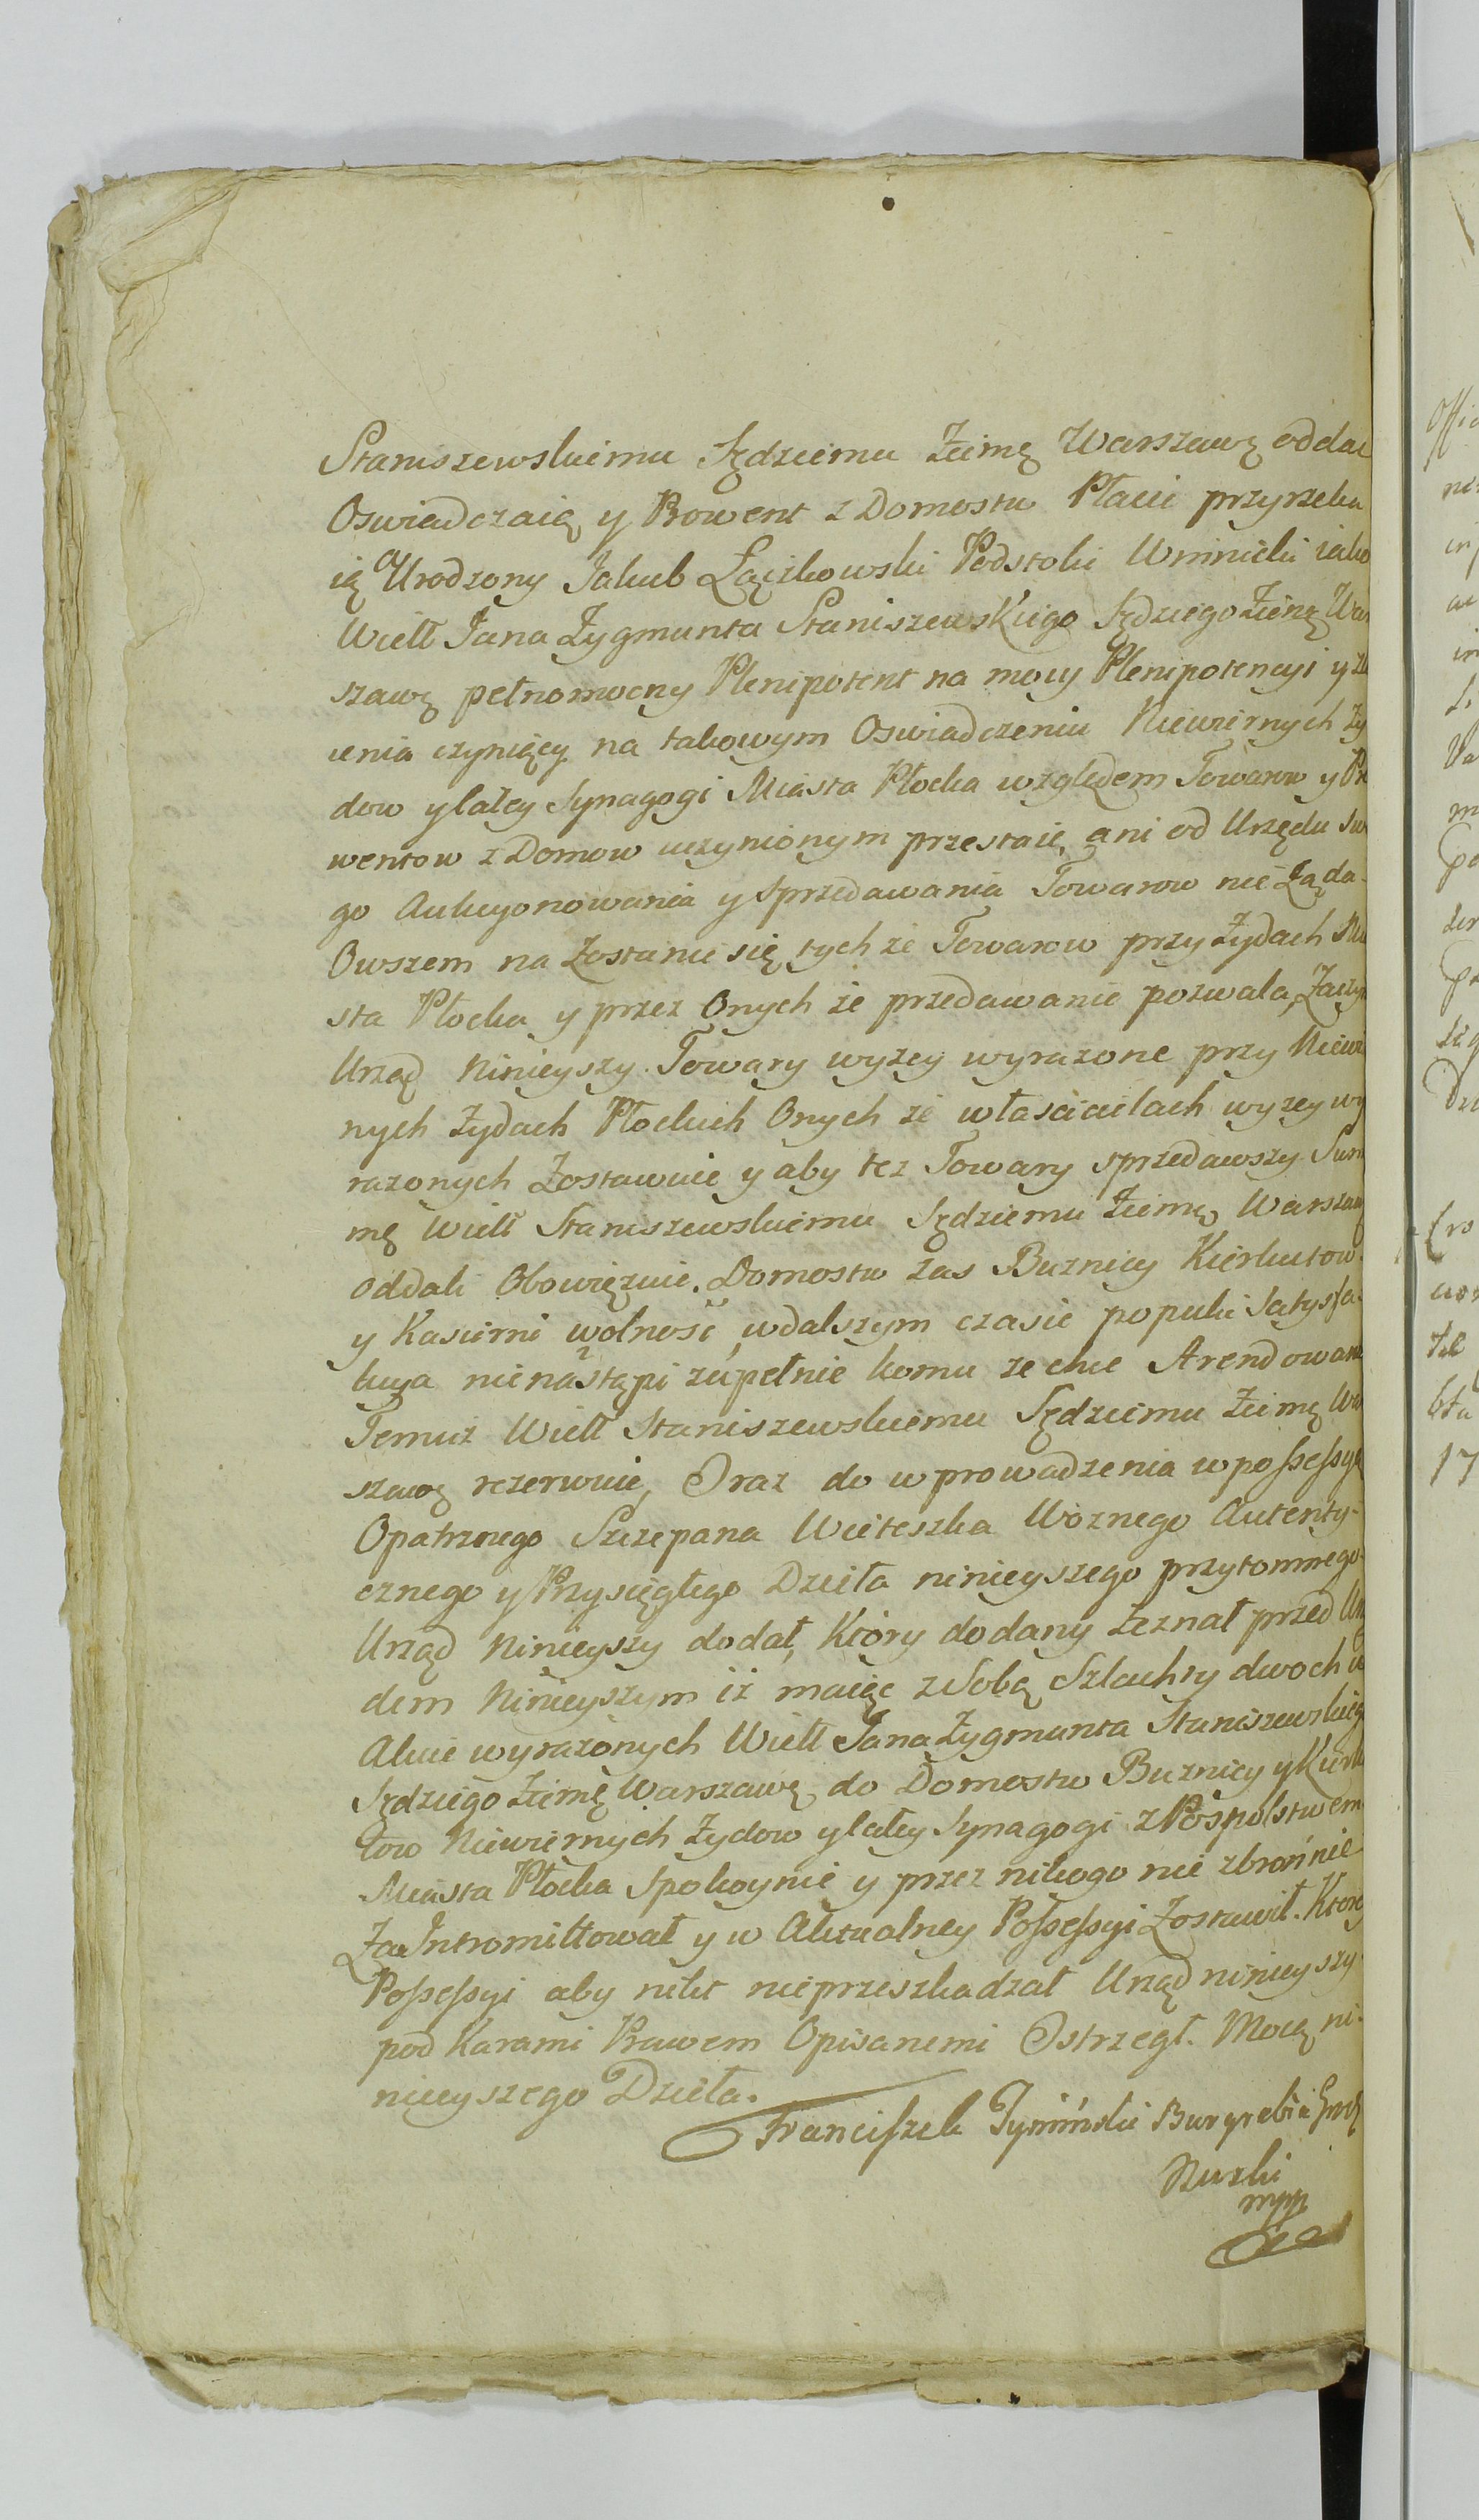 Staniszewskiemu Sędziemu Ziemę Warszawę oddać
Oswiadczaią y Prowent z Domostw Płacić przyrzeka
ią a Urodzony Jakub Łączkowski Podstoli Winnicki iako
Wielł Jana Zygmunta Staniszewskiego Sędziego Ziemę War
szawę pełnomocny Plenipotent na mocy Plenipotencyi y zle
cenia czyniący na takowym Oswiadczeniu Niewiernych Zy
dow y całey Synagogi Miasta Płocka względem Towarow y Pro
wentow z Domow uczynionym przestaie, ani od Urzędu swe
go Aukcyonowania y sprzedawania Towarow nie Ządа-
Owszem na Zostanie się tych że Towarow przy Zydach Mia
sta Płocka y przez Onych że przedawanie pozwala, Zaczym
Urząd Ninieyszy Towary wyzey wyrazone przy Niewier
nych Zydach Płockich Onych że własciciclach wyzey wy
razonych Zostawuie y aby tez Towary sprzedawszy Sum
mę Wielł Staniszewskiemu Sędziemu Ziemę Warszawę
oddali Obowięzuie. Domostw zas Buznicy Kierkutow
y Kasierni wolność, w dalszym czasie popuki Satysfa-
kcya nienastąpi zupełnie komu ze chce Arendowania
Temuz Wielł Staniszewskiemu Sędziemu Ziemę War
szawę rezerwuie, Oraz do wprowadzenia w possessyą
Opatrznego Szczepana Wieteszka Woznego Autenty-
cznego y Przysięgłego Dzieła ninieyszego przytomnego
Urząd Ninieyszy dodał, Ktory dodany Zeznał przed Urzę
dem Ninieyszym iż maiąc z Sobą Szlachty dwoch w
Akcie wyrazonych Wielł Jana Zygmunta Staniszewskiego
Sędziego Ziemę Warszawę do Domostw Buznicy y Kierku
tow Niewiernych Zydow y całey Synagogi z Pospolstwem
Miasta Płocka Spokoynie y przez nikogo nie zbronnie
Za Intromittował y w Aktualney Possessyi Zostawił. Ktorey
Possessyi aby nikt nieprzeszkadzał Urząd ninieyszy
pod Karami Prawem Opisanemi Ostrzegł. Mocą ni-
nieyszego Dzieła.
Franciszek Tyminski Burgrabia Grodz
Nurski
mpp